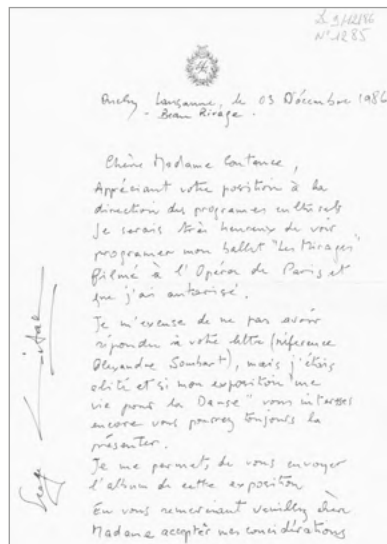 9/12/86
N° 1285
Ouchy Lausanne, le 03 Décembre 1986
- Beau Rivage -
Chère Madame
Appréciant votre position à la
direction des programmes culturels
Je serais très heureux de voir
programer mon ballet "Les Mirages"
filmé à l'Opéra de Paris et
que j'ai autorisé.
Je m'excuse de ne pas avoir
répondu à votre lettre (référence
Alexandre Sombart), mais j'étais
alité et si mon exposition "me
vie pour la Danse" vous interesse
encore vous pourrez toujours la
présenter.
Je me permet, de vous envoyer
l'album de cette exposition
En vous remerciant veuillez chère
Madame accepter mes considérations
Serge Lifar